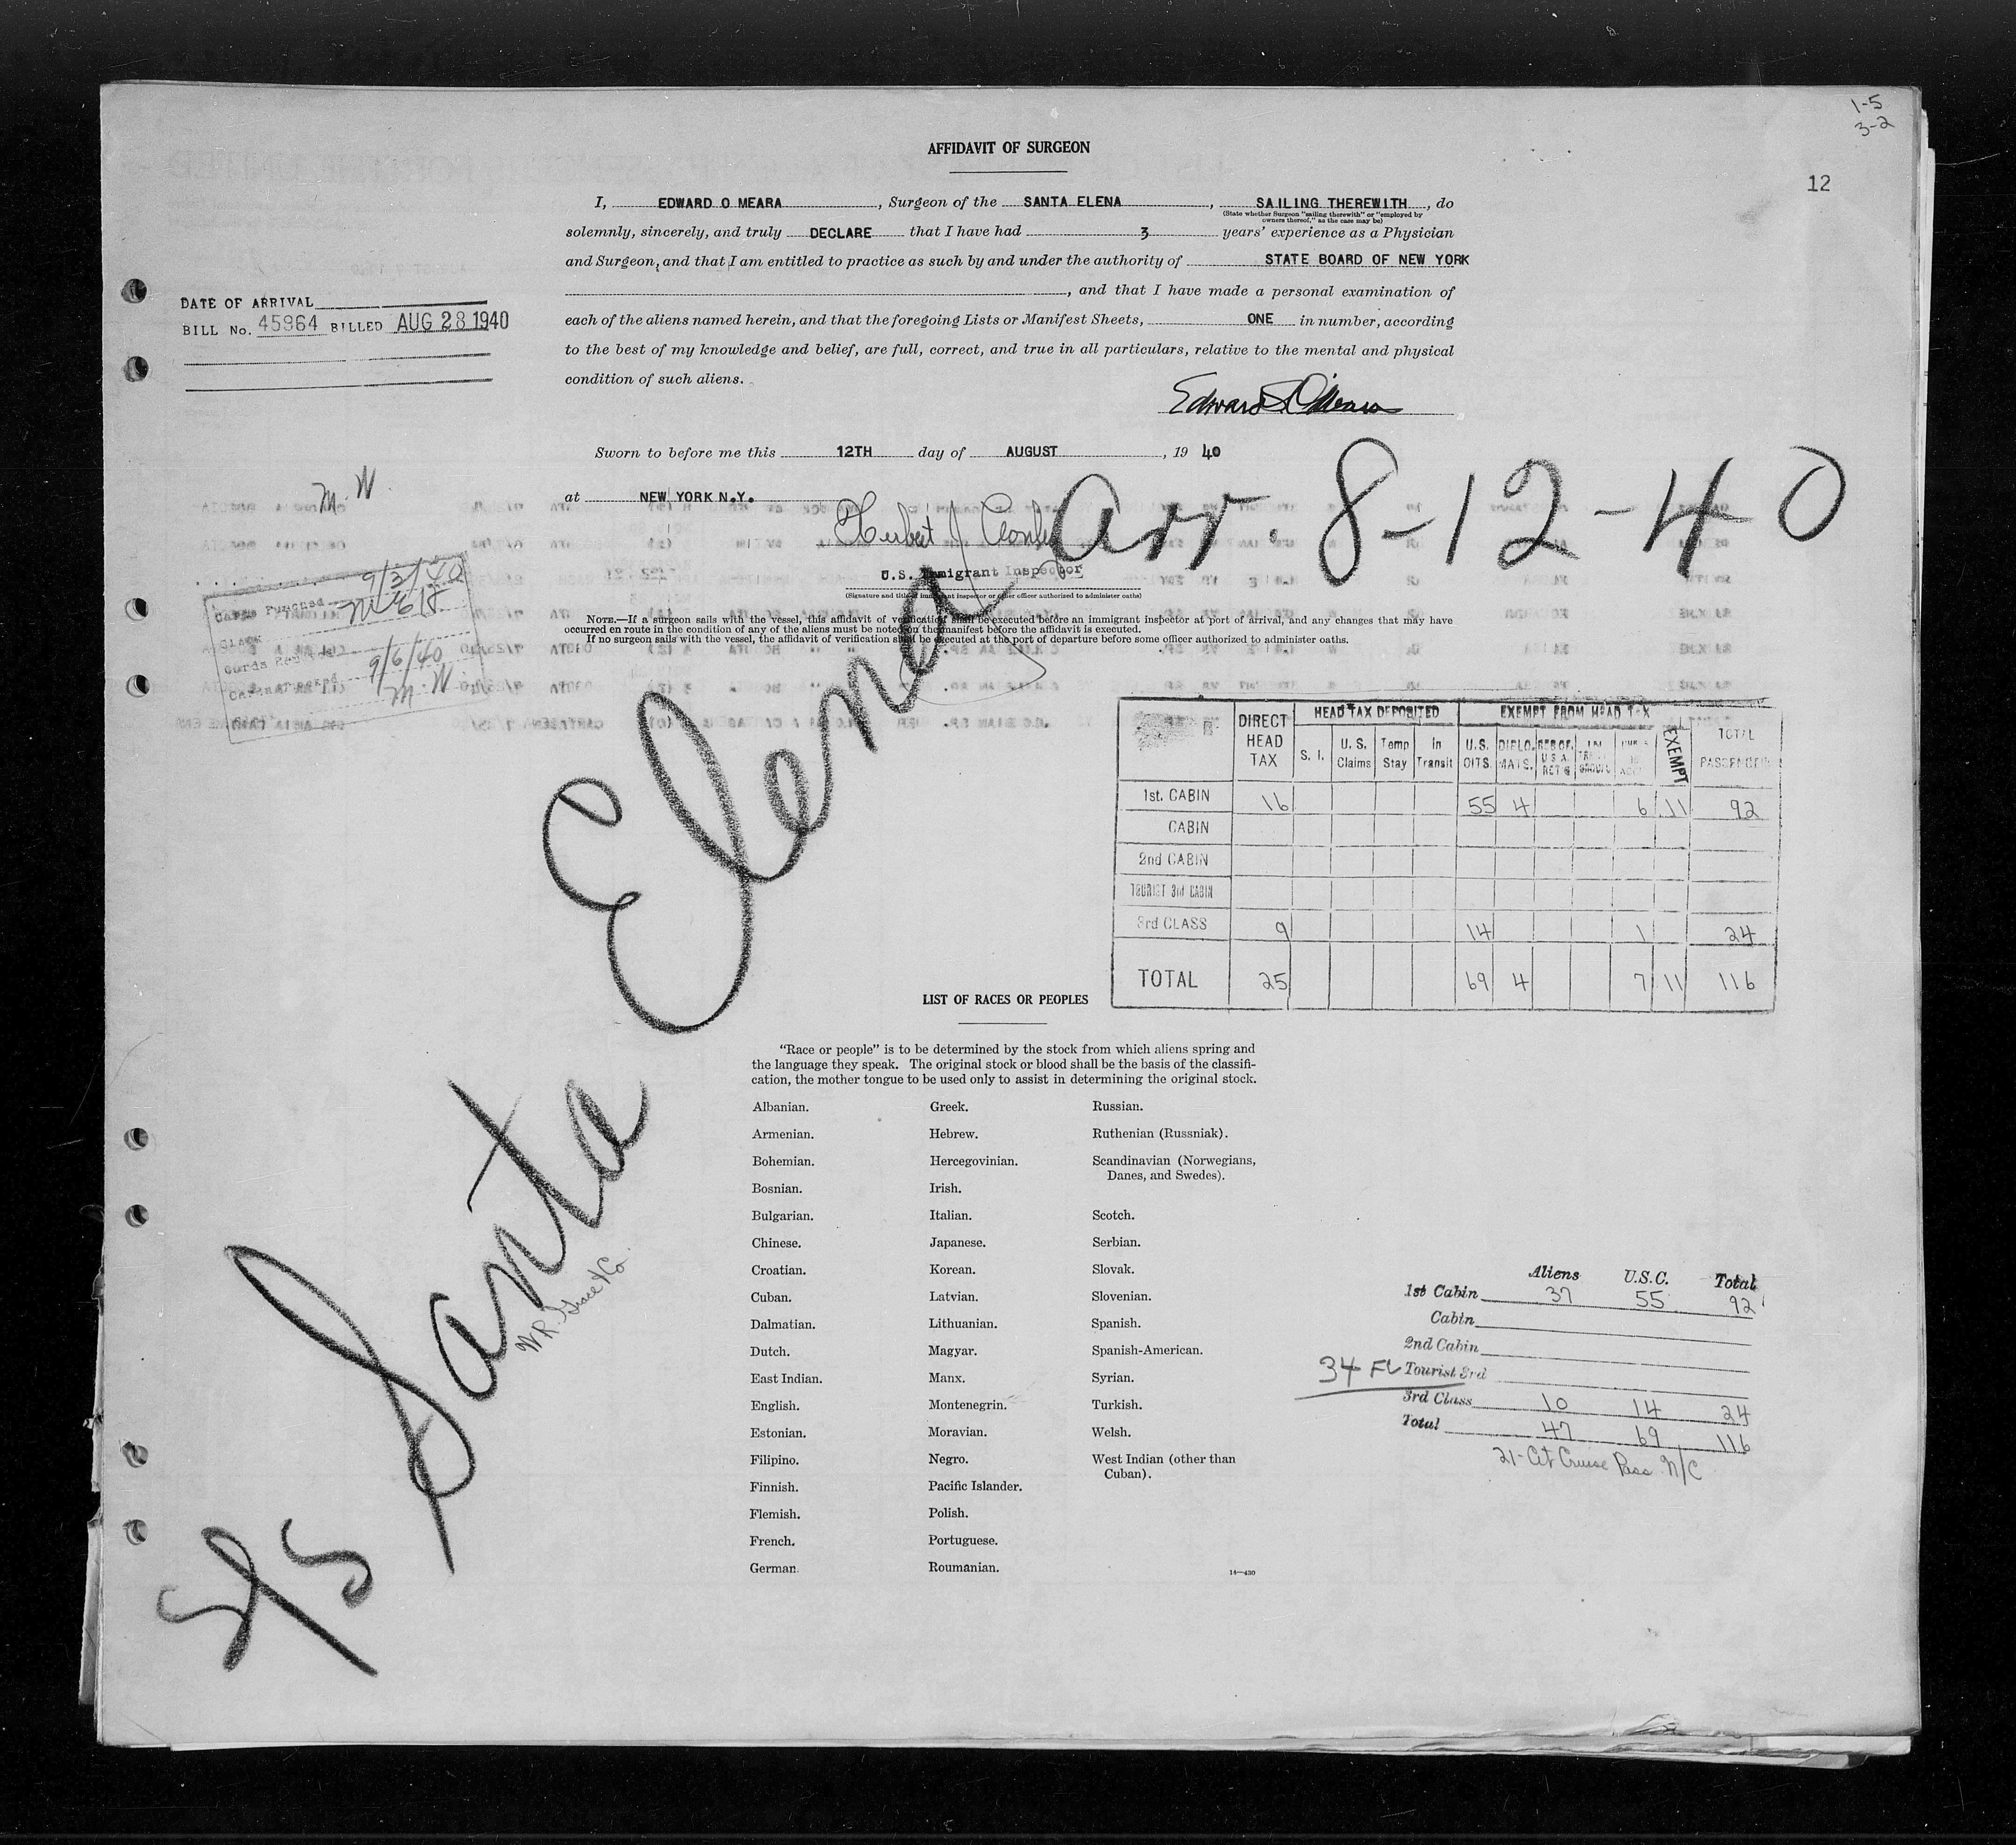 1-5
3-2
12
AFFIDAVIT OF SURGEON
I, EDWARD O MEARA, Surgeon of the SANTA ELENA, SAILING THEREWITH, do
(State whether Surgeon "sailing therewith" or "employed by
owners thereof," as the case may be)
solemnly, sincerely, and truly DECLARE that I have had 3 years' experience as a Physician
and Surgeon, and that I am entitled to practice as such by and under the authority of STATE BOARD OF NEW YORK
, and that I have made a personal examination of
each of the aliens named herein, and that the foregoing Lists or Manifest Sheets, ONE in number, according
to the best of my knowledge and belief, are full, correct, and true in all particulars, relative to the mental and physical
condition of such aliens.
DATE OF ARRIVAL
BILL No. 45964 BILLED AUG 28 1940
Edward O'Meara
Sworn to before me this 12TH day of AUGUST, 19 40
at NEW YORK N.Y.
Arr. 8-12-40
Herbert J
U.S. Immigrant Inspector
(Signature and title of immigrant inspector or other officer authorized to administer oaths)
NOTE.—If a surgeon sails with the vessel, this affidavit of verification shall be executed before an immigrant inspector at port of arrival, and any changes that may have
occurred en route in the condition of any of the aliens must be noted on the manifest before the affidavit is executed.
If no surgeon sails with the vessel, the affidavit of verification shall be executed at the port of departure before some officer authorized to administer oaths.
M. W.
Cards Punched 9/3/40
Clerk
9/6/40
M. W.
S/S Santa Elena
W.R. Grace & Co.
DIRECT HEAD TAX HEAD TAX DEPOSITED EXEMPT FROM HEAD TAX TOTAL PASSENGERS
S. I. U. S. Claims Temp Stay In Transit U.S. CITS. DIPLO. MATS. EXEMPT
1st. CABIN 16 55 4 6 11 92
CABIN
2nd CABIN
TOURIST 3rd CABIN
3rd CLASS 9 14 1 24
TOTAL 25 69 4 7 11 116
LIST OF RACES OR PEOPLES
"Race or people" is to be determined by the stock from which aliens spring and
the language they speak. The original stock or blood shall be the basis of the classifi-
cation, the mother tongue to be used only to assist in determining the original stock.
Albanian.
Armenian.
Bohemian.
Bosnian.
Bulgarian.
Chinese.
Croatian.
Cuban.
Dalmatian.
Dutch.
East Indian.
English.
Estonian.
Filipino.
Finnish.
Flemish.
French.
German.
Greek.
Hebrew.
Hercegovinian.
Irish.
Italian.
Japanese.
Korean.
Latvian.
Lithuanian.
Magyar.
Manx.
Montenegrin.
Moravian.
Negro.
Pacific Islander.
Polish.
Portuguese.
Roumanian.
Russian.
Ruthenian (Russniak).
Scandinavian (Norwegians,
Danes, and Swedes).
Scotch.
Serbian.
Slovak.
Slovenian.
Spanish.
Spanish-American.
Syrian.
Turkish.
Welsh.
West Indian (other than
Cuban).
14—430
Aliens U.S.C. Total
1st Cabin 37 55 92
Cabin
2nd Cabin
34 FL Tourist 3rd
3rd Class 10 14 24
Total 47 69 116
21-Cit Cruise Pass N/C